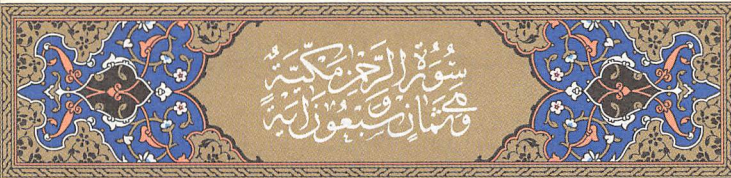 سُورَةُ الرَّحْمٰنِ مَكِّيَّةٌ
وَهِيَ ثَمَانٍ وَسَبْعُونَ اٰيَةً